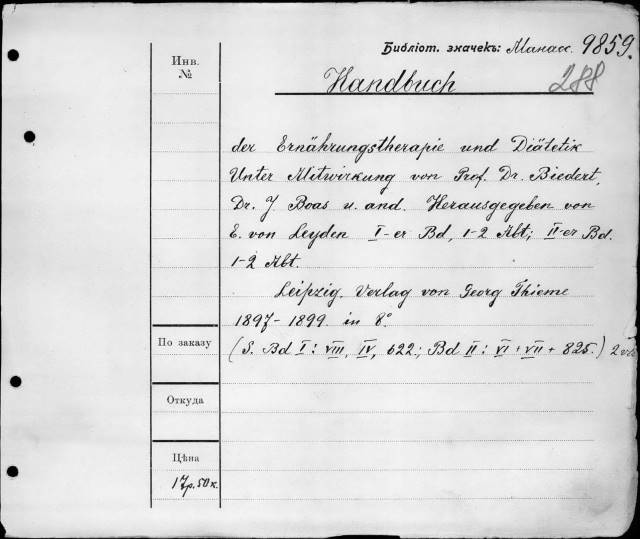 Библіот. значекъ: Манасс. 9859.
Инв.
№
Handbuch
288
der Ernährungstherapie und Diätetik
Unter Mitwirkung von Prof. Dr. Biedert,
Dr. J Boas u. and. Herausgegeben von
E. von Leyden I-er Bd, 1-2 Abt; II-er Bd.
1-2 Abt.
Leipzig. Verlag von Georg Thieme
1897-1899. in 8°
По заказу
(S. Bd I: VIII, IV, 622; Bd II: VI + VII + 825.) 2 vls
Откуда
Цѣна
17р.50к.